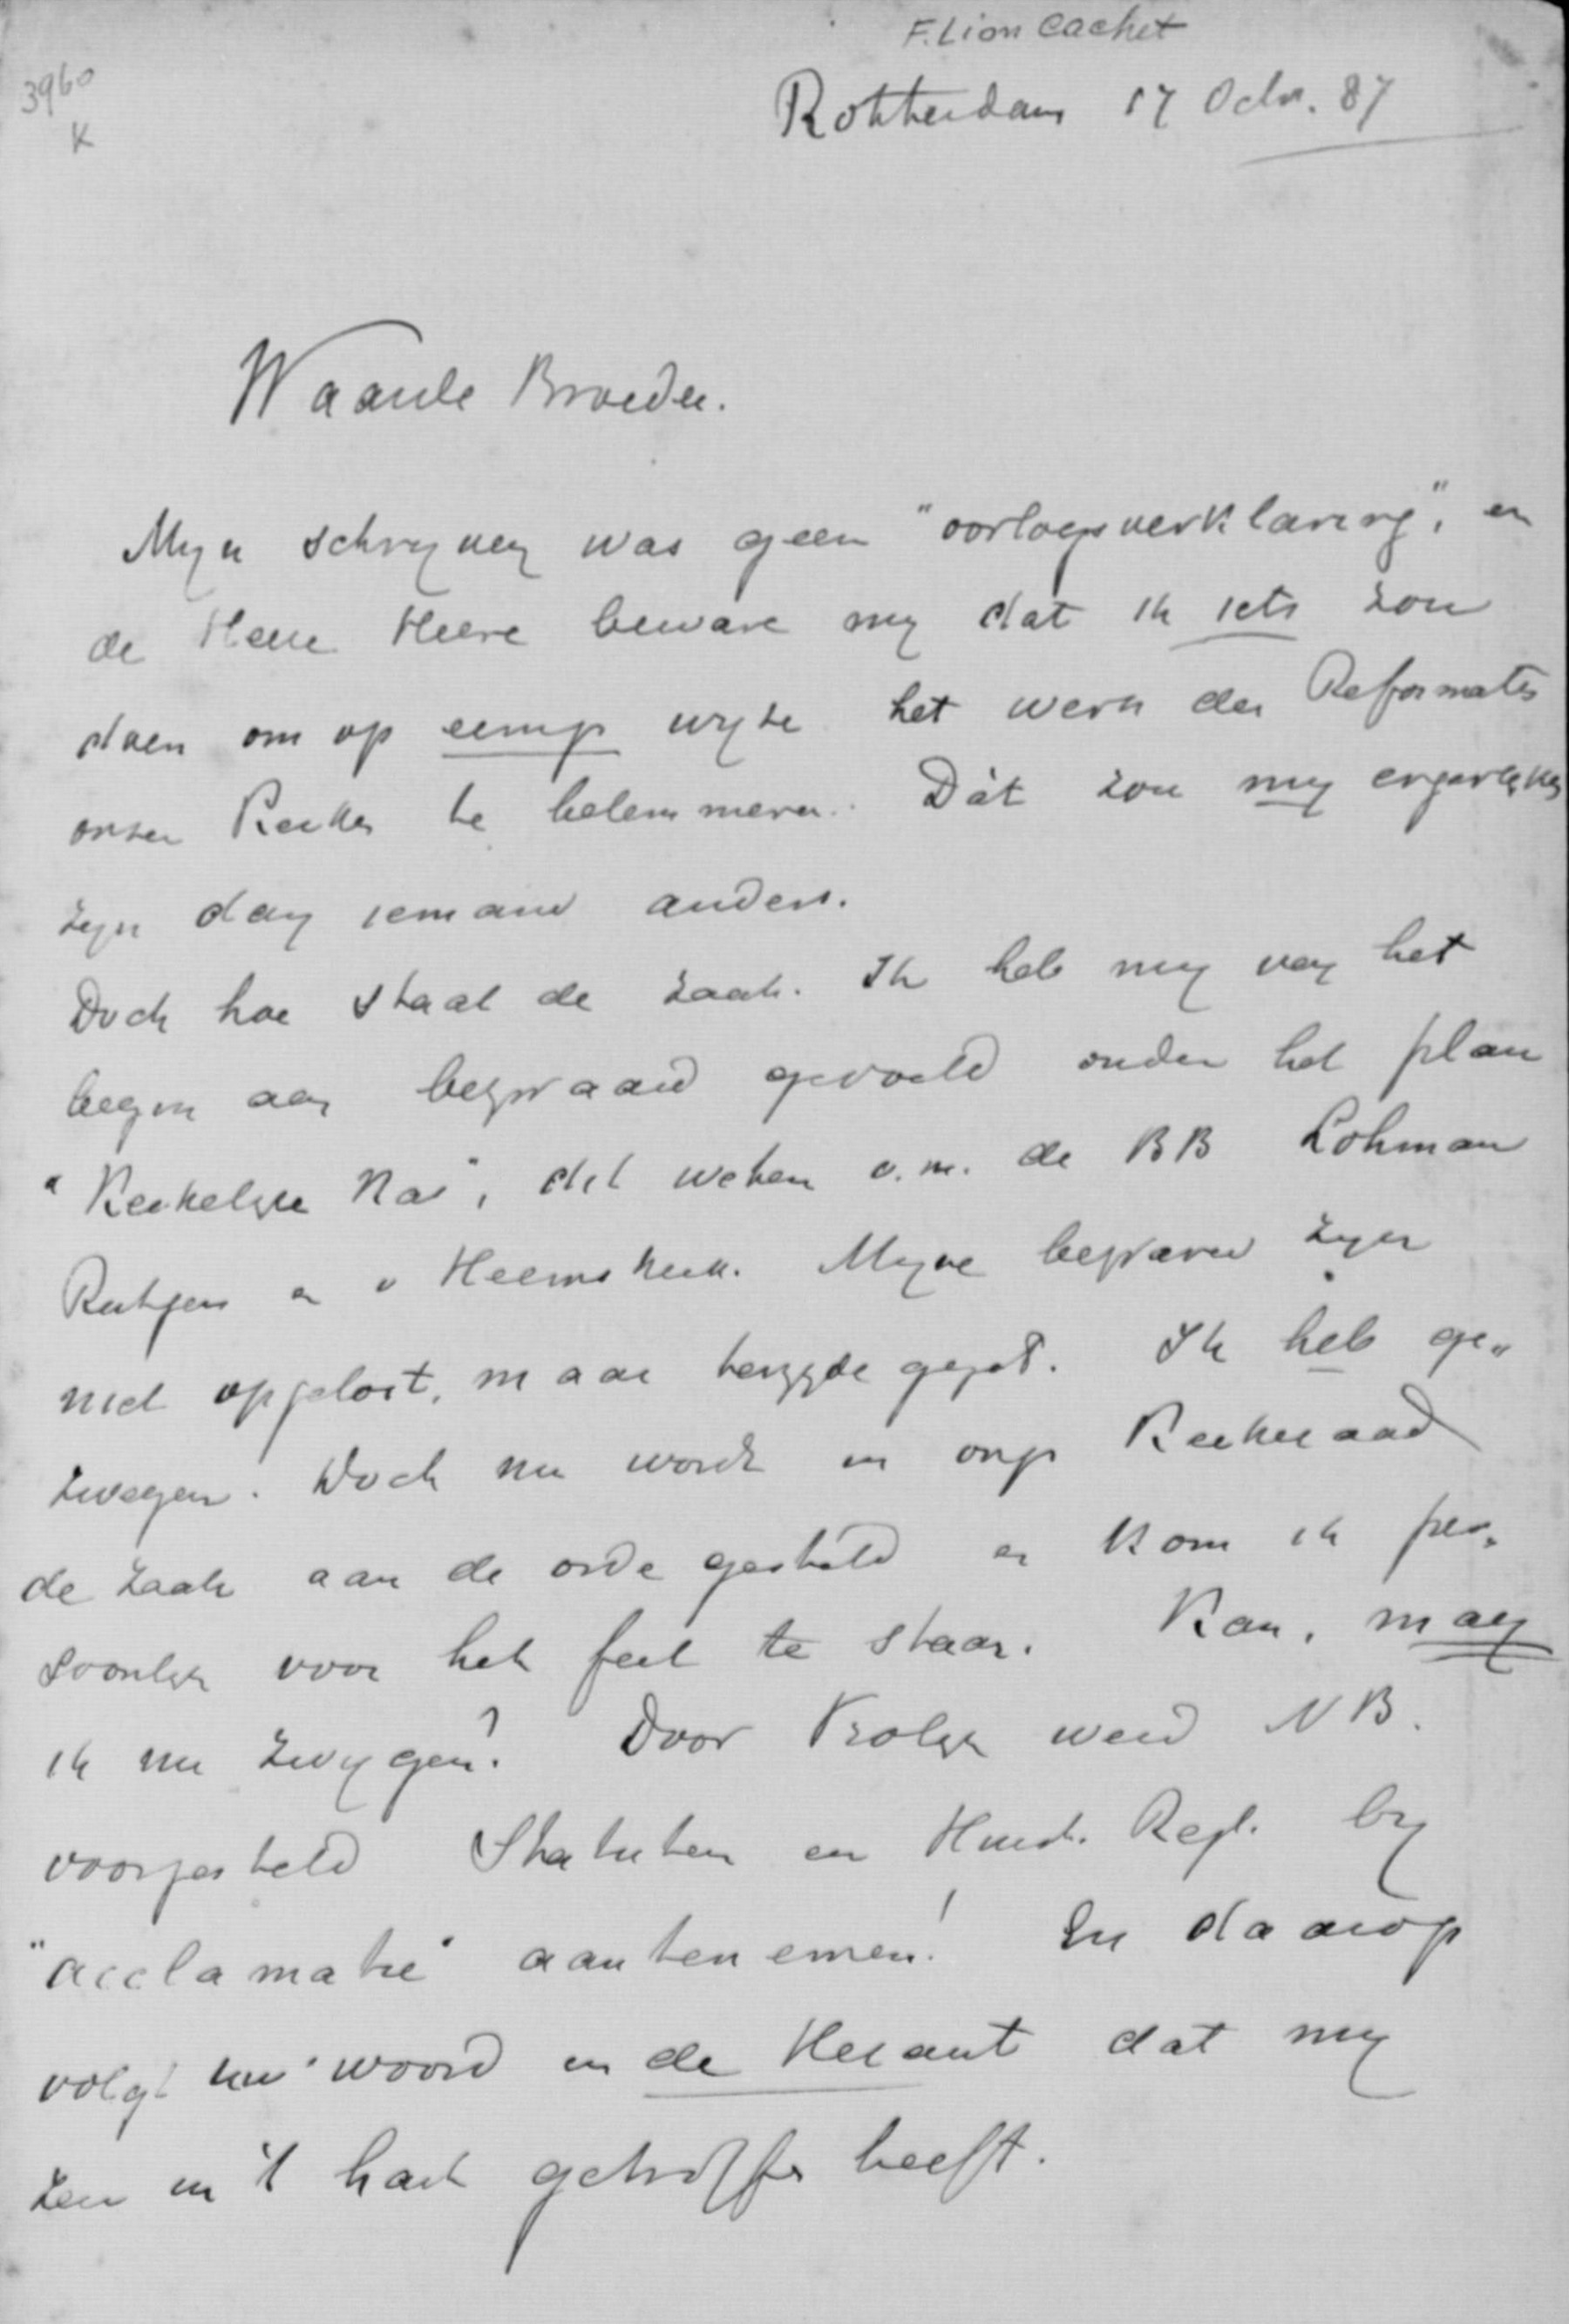 F. Lion Cachet
3960
K
Rotterdam 17 Octr. 87
Waarde Broeder.
Myn schryven was geen "oorlogsverklaring", en
de Heere Heere beware my dat ik iets zou
doen om op eenige wyze het werk der Reformatie
onzer Kerken te belemmeren. Dàt zou my ergerlyker
zyn dan iemand anders.
Doch hoe staat de zaak. Ik heb my van het
begin aan bezwaard gevoeld onder het plan
"Kerkelyke Kas", dit weten o.m. de BB Lohman
Rutgers en v Heemskerk. Myne bezwaren zyn
niet opgelost, maar terzyde gezet. Ik heb ge„
zwegen. Doch nu wordt in onze Kerkeraad
de zaak aan de orde gesteld en kom ik per„
soonlyk voor het feit te staan. Kan, mag
ik nu zwygen? Door Vrolyk werd NB.
voorgesteld Statuten en Huish. Regl. by
"acclamatie" aantenemen! En daarop
volgt uw woord in de Heraut dat my
zeer in 't hart getroffen heeft.